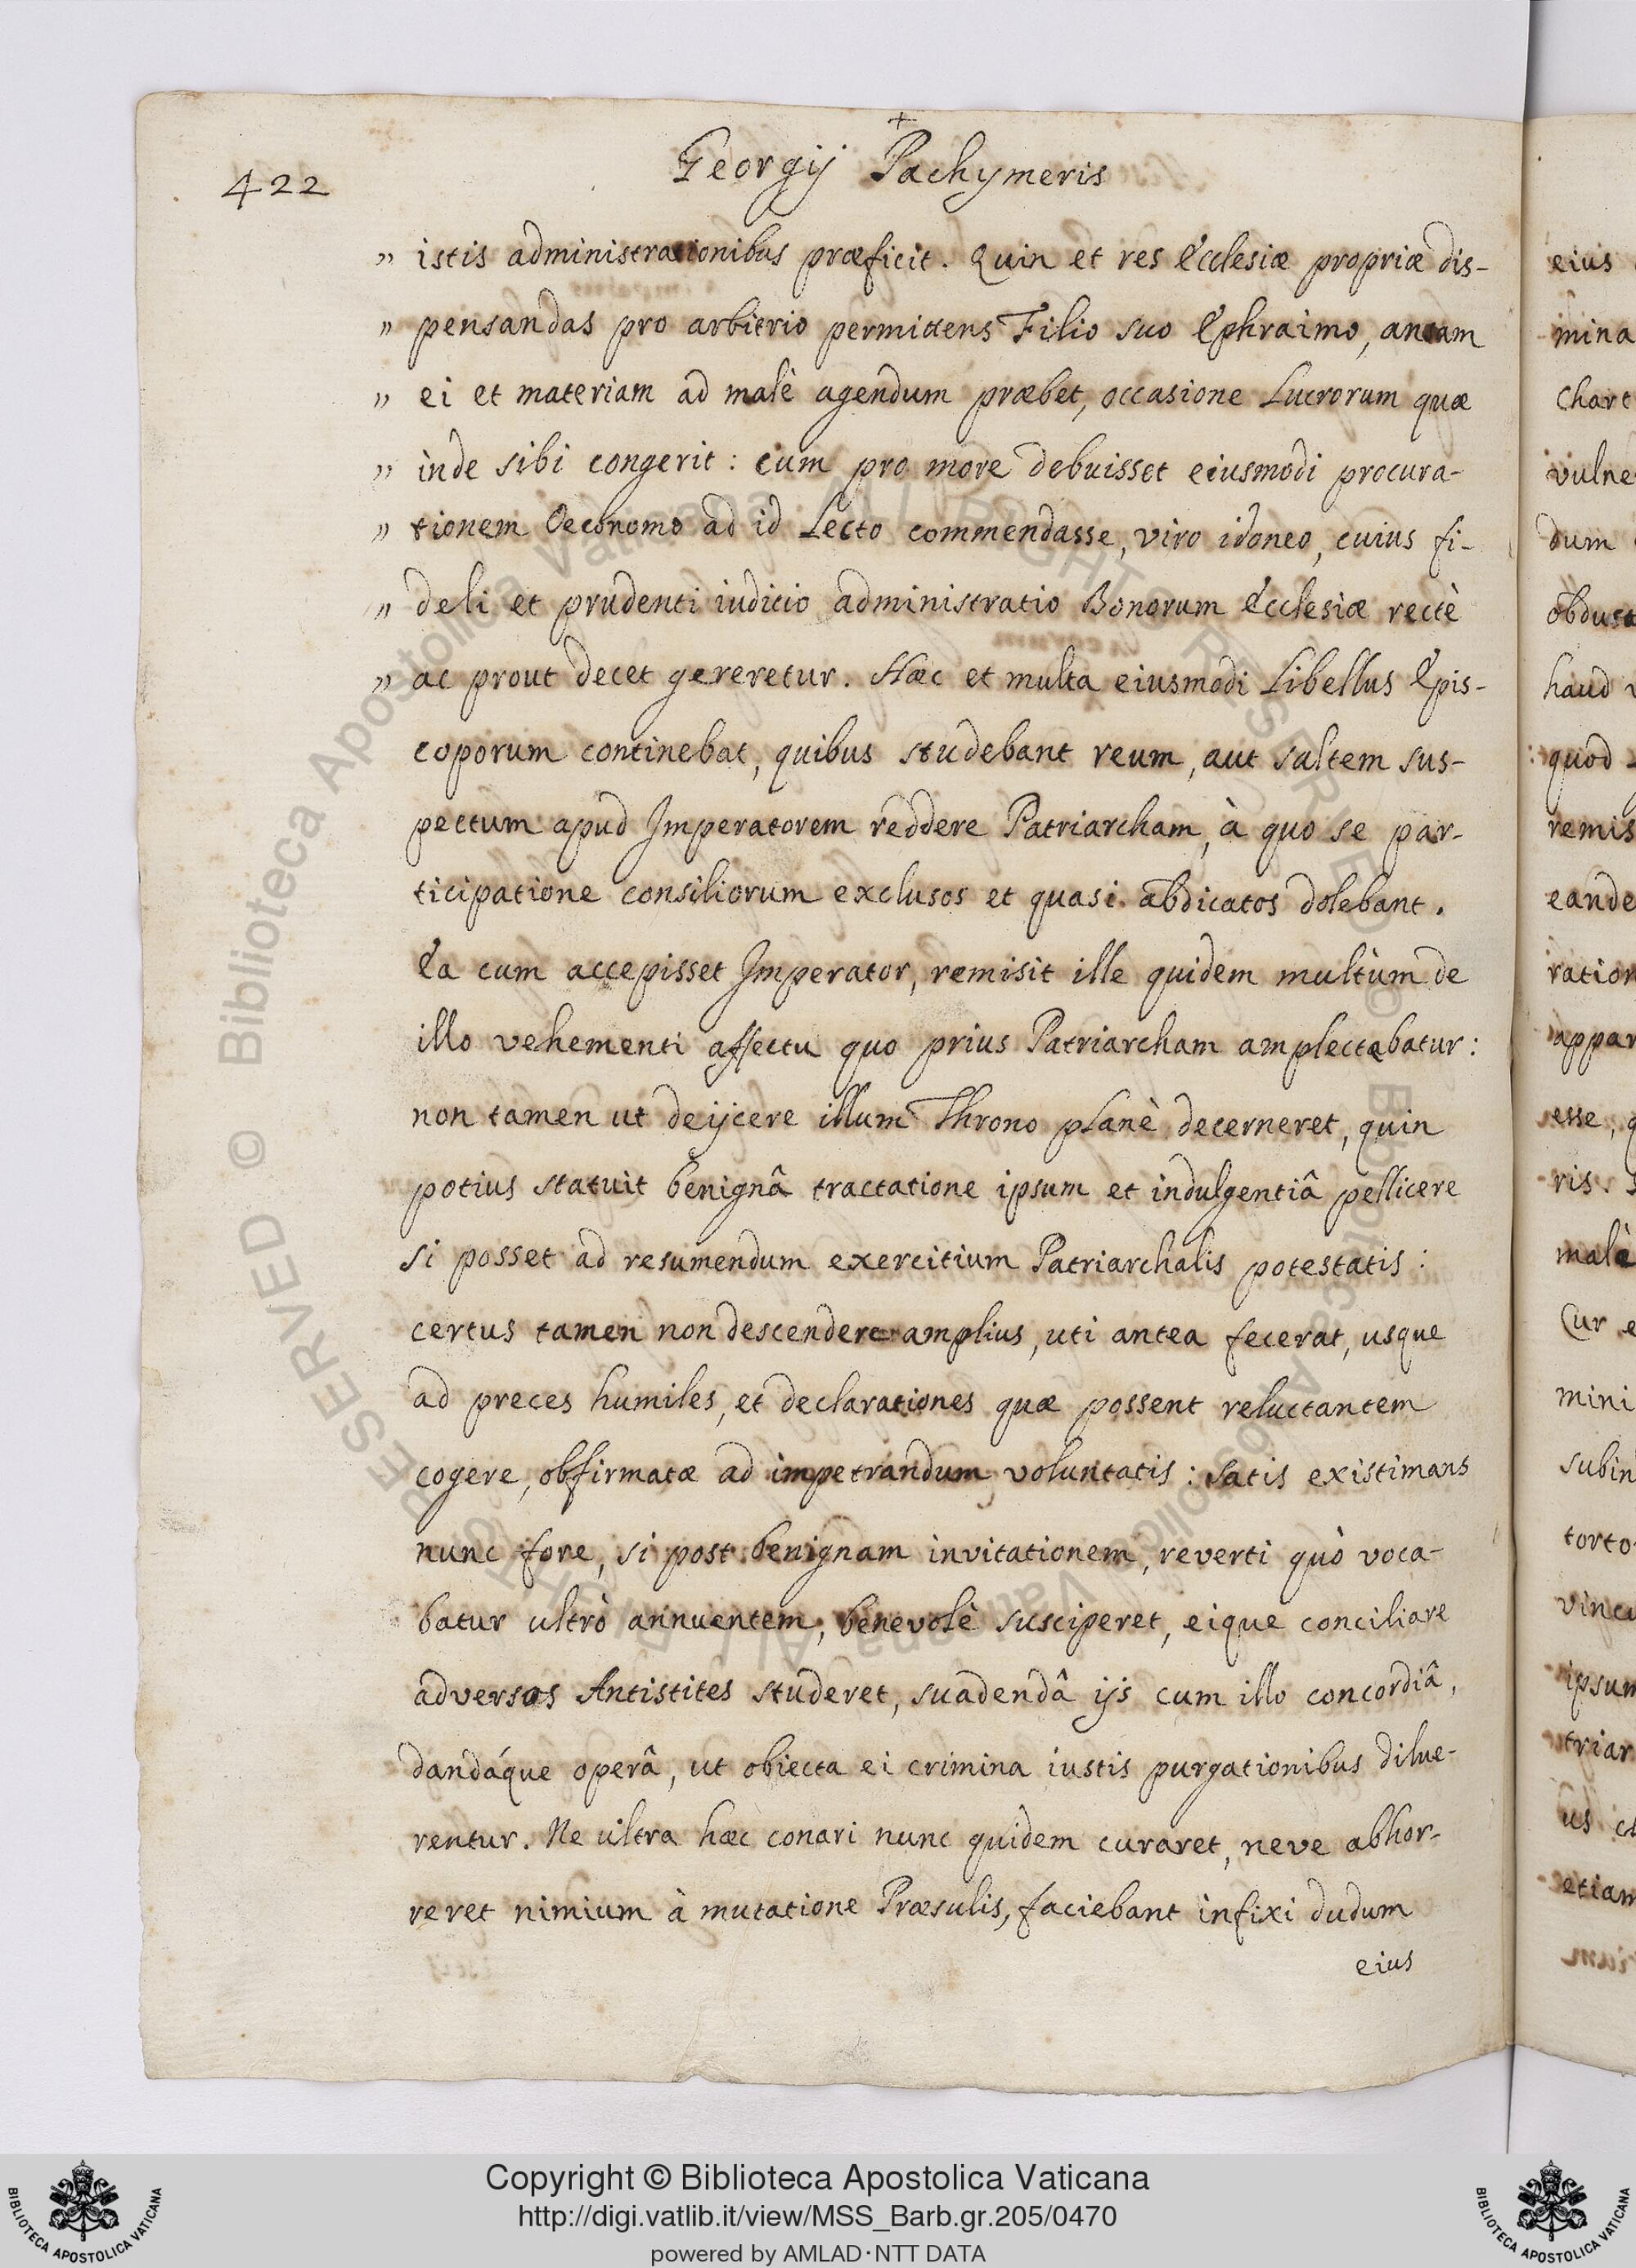 +
422 Georgij Pachymeris
" istis administrationibus præficit. Quin et res Ecclesiæ propriæ dis-
" pensandas pro arbitrio permittens Filio suo Ephraimo, ansam
" ei et materiam ad malè agendum præbet, occasione Lucrorum quæ
" inde sibi congerit : cum pro more debuisset eiusmodi procura-
" tionem Oeconomo ad id Lecto commendasse, viro idoneo, cuius fi-
" deli et prudenti iudicio administratio Bonorum Ecclesiæ rectè
" ac prout decet gereretur. Hæc et multa eiusmodi Libellus Epis-
coporum continebat, quibus studebant reum, aut saltem sus-
pectum apud Imperatorem reddere Patriarcham, à quo se par-
ticipatione consiliorum exclusos et quasi abdicatos dolebant.
Ea cum accepisset Imperator, remisit ille quidem multùm de
illo vehementi affectu quo prius Patriarcham amplectebatur :
non tamen ut deijcere illum Throno planè decerneret, quin
potius statuit benignâ tractatione ipsum et indulgentiâ pellicere
si posset ad resumendum exercitium Patriarchalis potestatis :
certus tamen non descendere amplius, uti antea fecerat, usque
ad preces humiles, et declarationes quæ possent reluctantem
cogere, obfirmatæ ad impetrandum voluntatis : satis existimans
nunc fore, si post benignam invitationem, reverti quò voca-
batur ultrò annuentem, benevolè susciperet, eique conciliare
adversos Antistites studeret, suadendâ ijs cum illo concordiâ,
dandáque operâ, ut obiecta ei crimina iustis purgationibus dilue-
rentur. Ne ultra hæc conari nunc quidem curaret, neve abhor-
reret nimium à mutatione Præsulis, faciebant infixi dudum
eius
eius
mina
Chart
vulne
dum
obdust
haud
quod
remis
eande
ration
appar
esse,
ris.
malè
Cur e
mini
subin
torto
vincu
ipsum
triar
us
etiam
© Biblioteca Apostolica Vaticana ALL RIGHTS RESERVED © Biblioteca Apostolica Vaticana ALL RIGHTS RESERVED
Copyright © Biblioteca Apostolica Vaticana
http://digi.vatlib.it/view/MSS_Barb.gr.205/0470
powered by AMLAD·NTT DATA
BIBLIOTECA APOSTOLICA VATICANA
BIBLIOTECA APOSTOLICA VATICANA